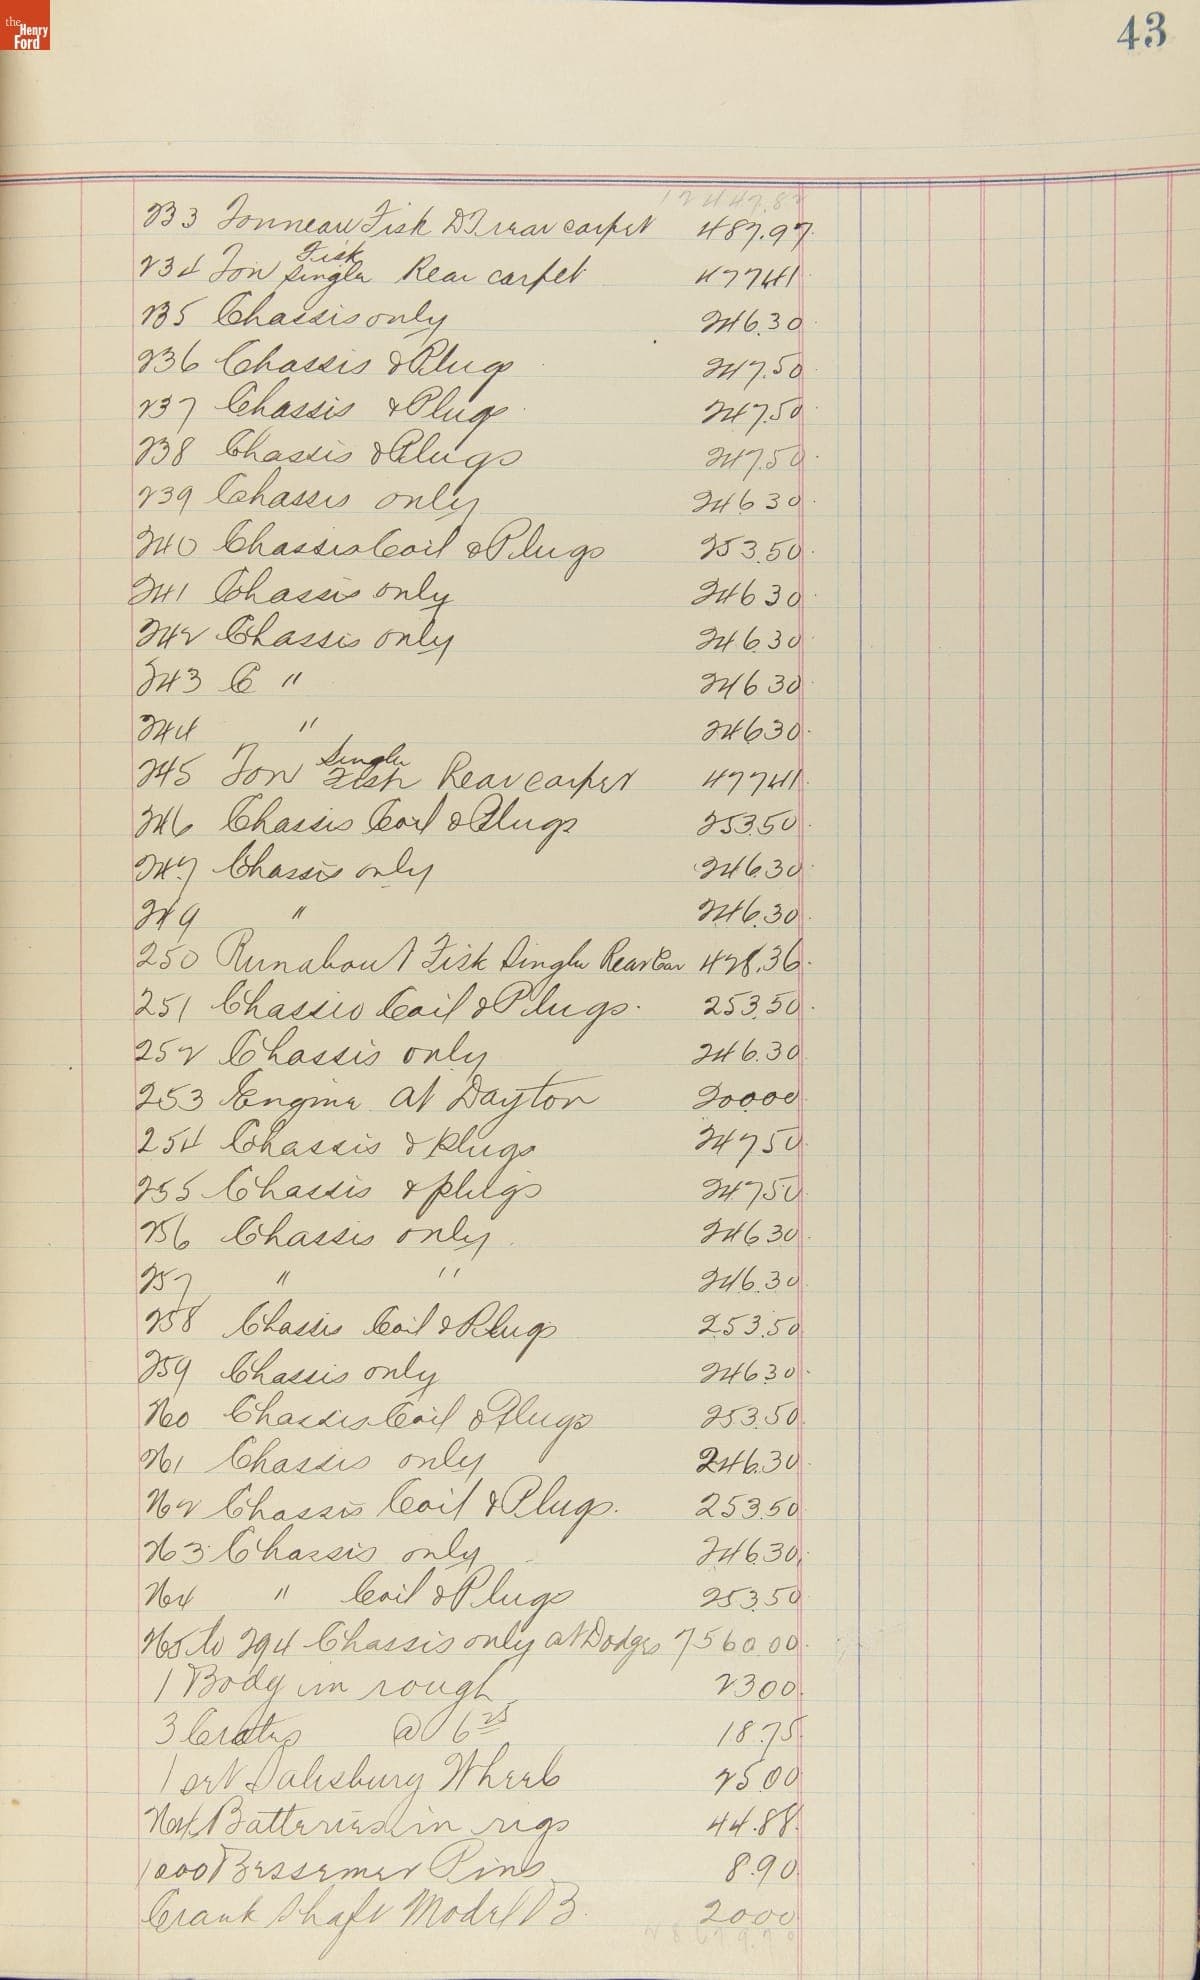 the Henry Ford
43
12447.82
233 Tonneau Fisk DT rear carpet 487.97
234 Ton Fisk Single Rear carpet 477 41
235 Chassis only 246.30
236 Chassis & Plugs 247.50
237 Chassis & Plugs 247.50
238 Chassis & Plugs 247.50
239 Chassis only 246 30
240 Chassis Coil & Plugs 253.50
241 Chassis only 246 30
242 Chassis only 246.30
243 C " 246 30
244 " 246 30
245 Ton Single Fisk Rear carpet 477 41
246 Chassis Coil & Plugs 253.50
247 Chassis only 246.30
249 " 246.30
250 Runabout Fisk Single Rear Car 428.36
251 Chassis Coil & Plugs. 253.50
252 Chassis only 246.30
253 Engine at Dayton 200 00
254 Chassis & plugs 247 50
255 Chassis & plugs 247 50
256 Chassis only 246 30
257 " " 246.30
258 Chassis Coil & Plugs 253.50
259 Chassis only 246 30
260 Chassis Coil & Plugs 253.50
261 Chassis only 246.30
262 Chassis Coil & Plugs. 253.50
263 Chassis only 246.30
264 " Coil & Plugs 253.50
265 to 294 Chassis only at Dodges 7560 00
1 Body in rough 23 00
3 Crates @ 6 25 18.75
1 set Salisbury Wheels 25 00
264 Batteries in rigs 44.88
1000 Bessemer Pins 8.90
Crank Shaft Model B. 20 00